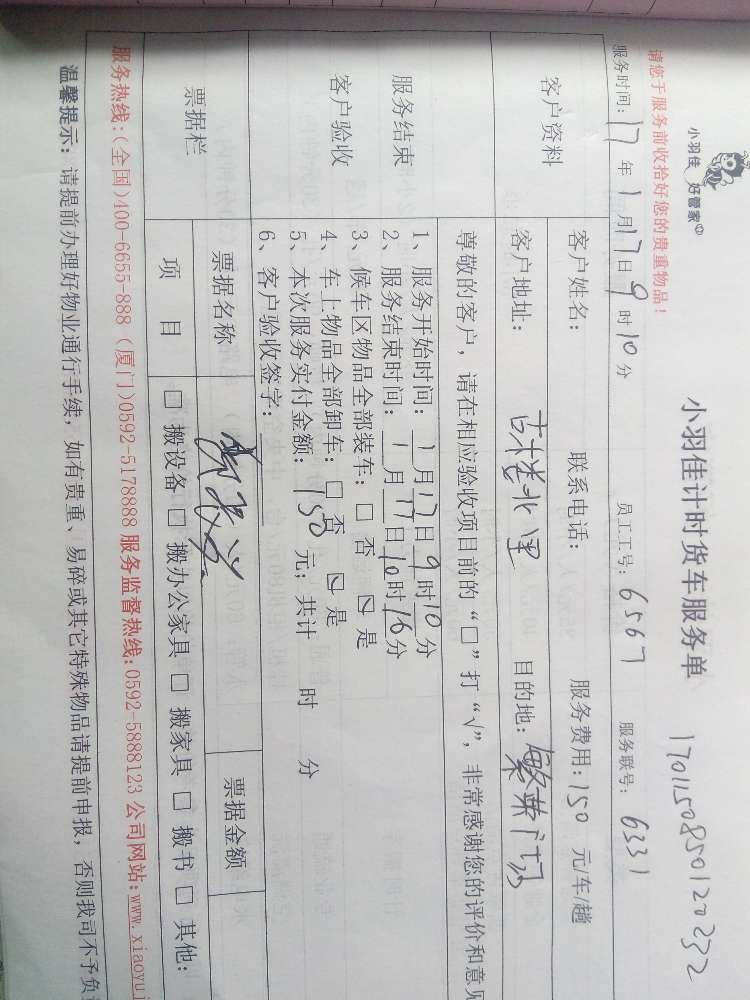 小羽佳 好管家
小羽佳计时货车服务单
1701150850120232
请您于服务前收拾好您的贵重物品！
服务时间：17年1月17日9时10分 员工工号：6567 服务联号：6331
客户资料
客户姓名： 联系电话： 服务费用：150 元/车/趟
客户地址：古楼北里 目的地：繁荣广场
尊敬的客户，请在相应验收项目前的“□”打“√”，非常感谢您的评价和意见
服务结束
客户验收
1、服务开始时间：1月17日9时10分
2、服务结束时间：1月17日10时16分
3、候车区物品全部装车：□ 否 ☑ 是
4、车上物品全部卸车：□ 否 ☑ 是
5、本次服务实付金额：150元；共计 时 分
6、客户验收签字：
票据栏
票据名称 票据金额
项目 □ 搬设备 □ 搬办公家具 □ 搬家具 □ 搬书 □ 其他：
服务热线：（全国）400-6655-888（厦门）0592-5178888 服务监督热线：0592-5888123 公司网站：www.xiaoyuj
温馨提示：请提前办理好物业通行手续，如有贵重、易碎或其它特殊物品请提前申报，否则我司不予负